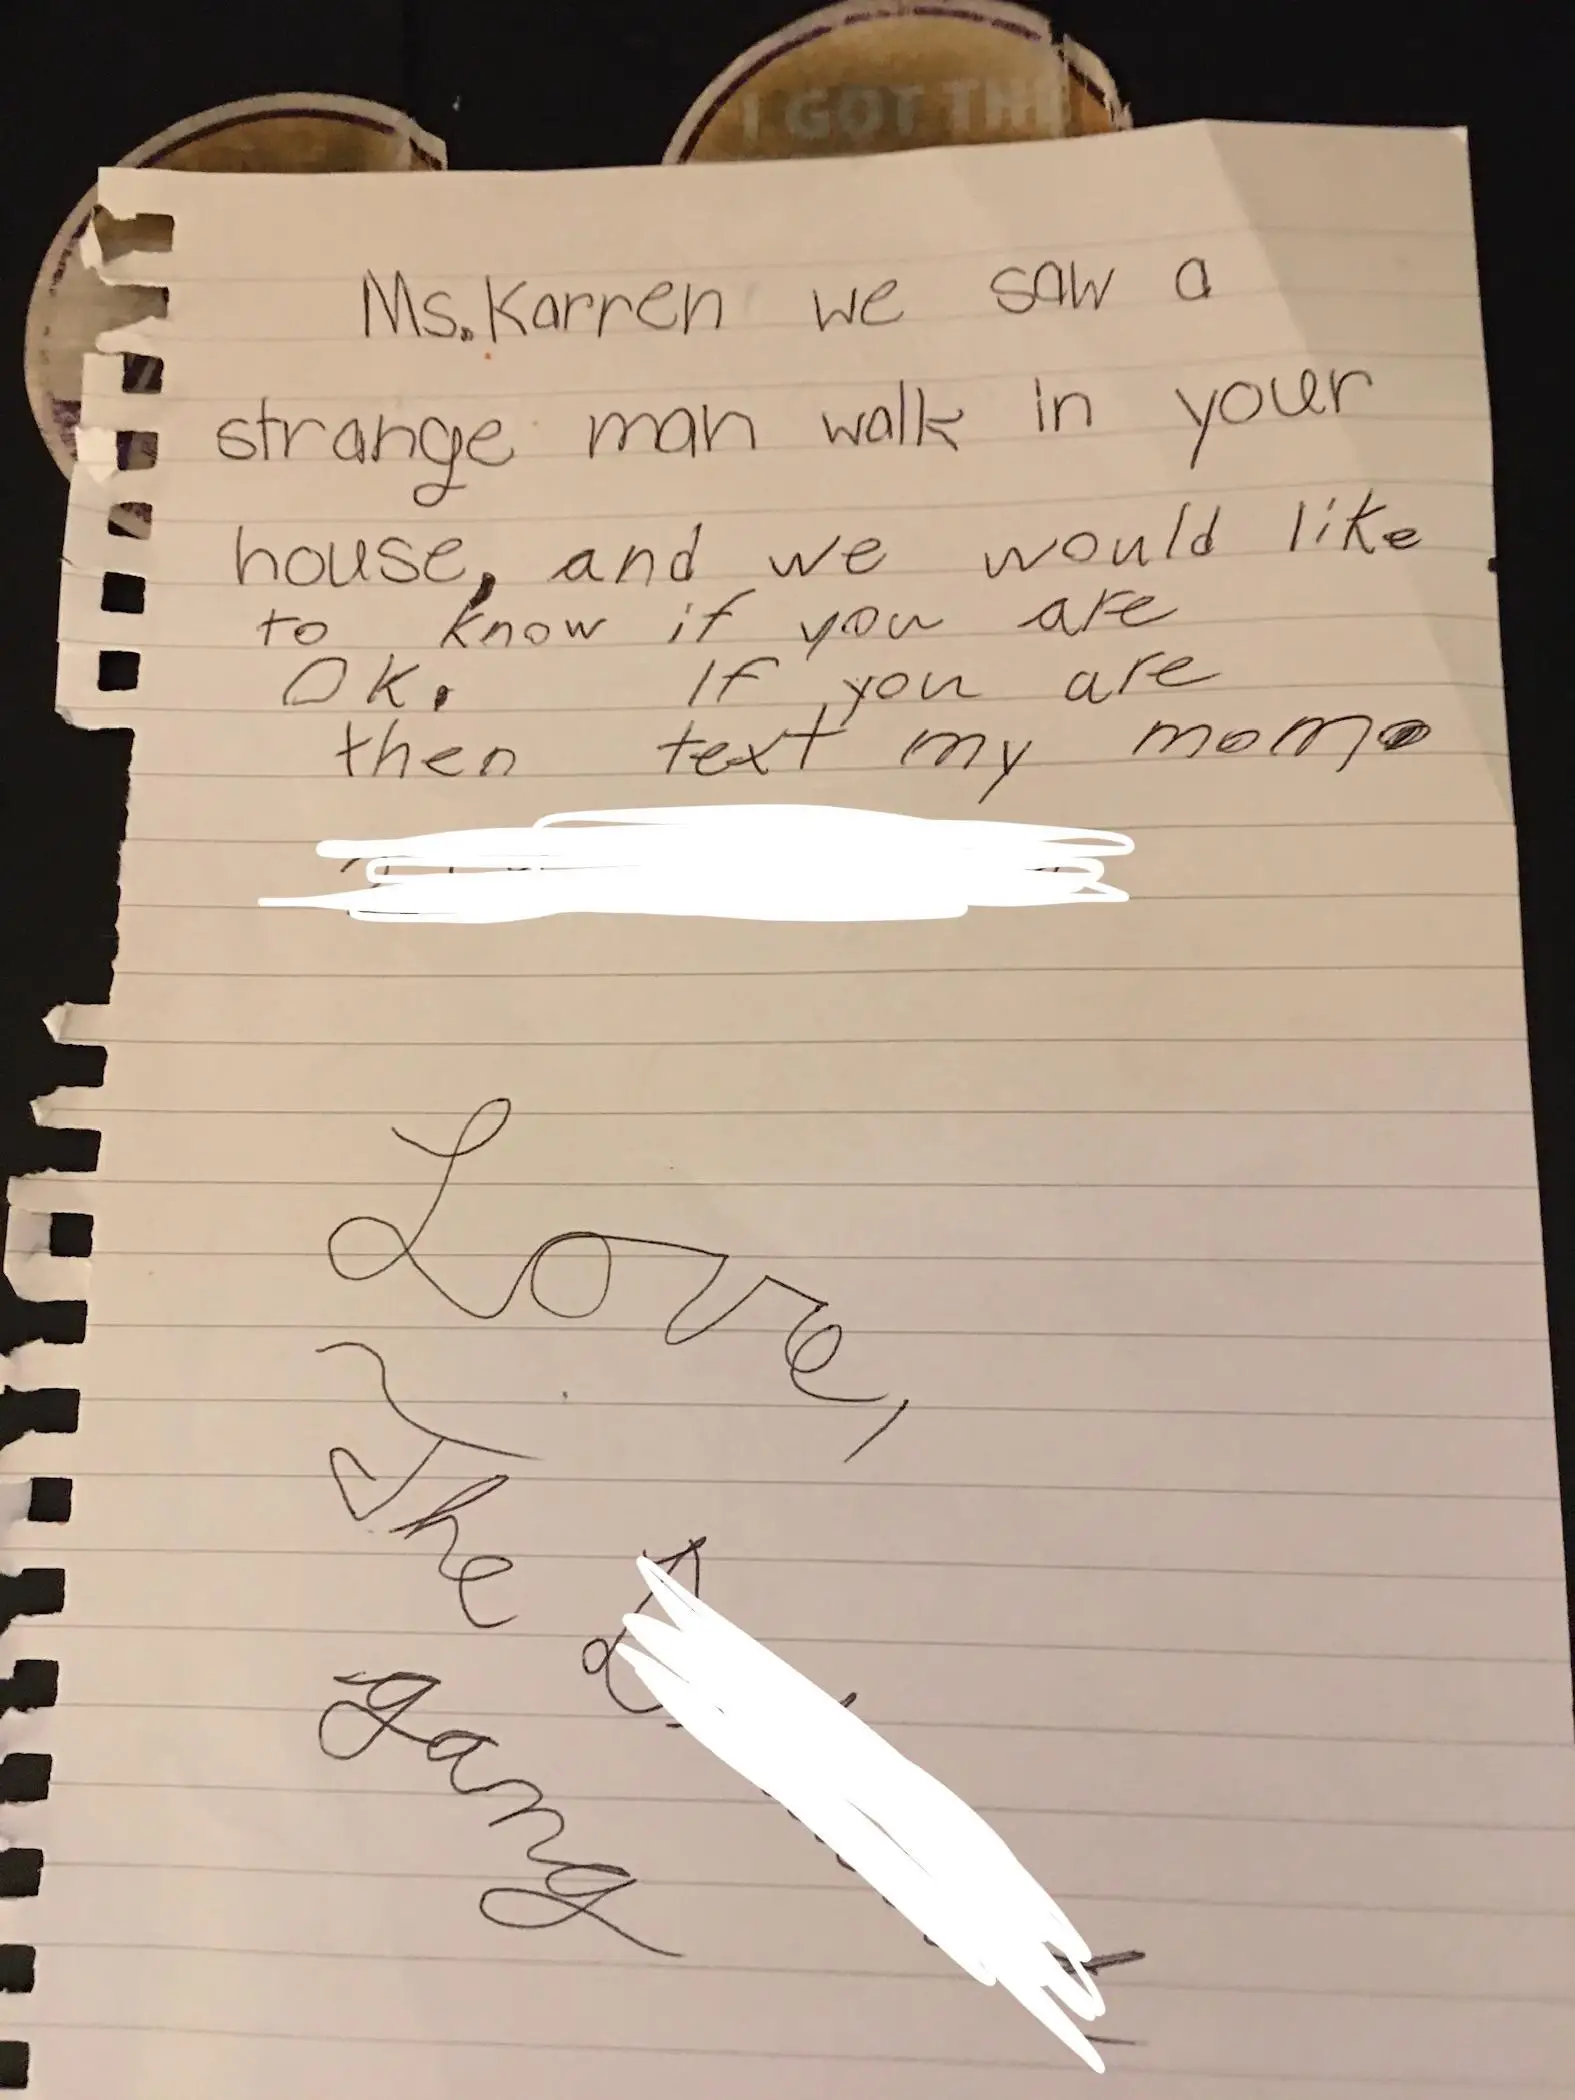 I GOT THE
Ms. Karren we saw a
strange man walk in your
house, and we would like
to know if you are
OK. If you are
then text my mom.
Love,
The
gang